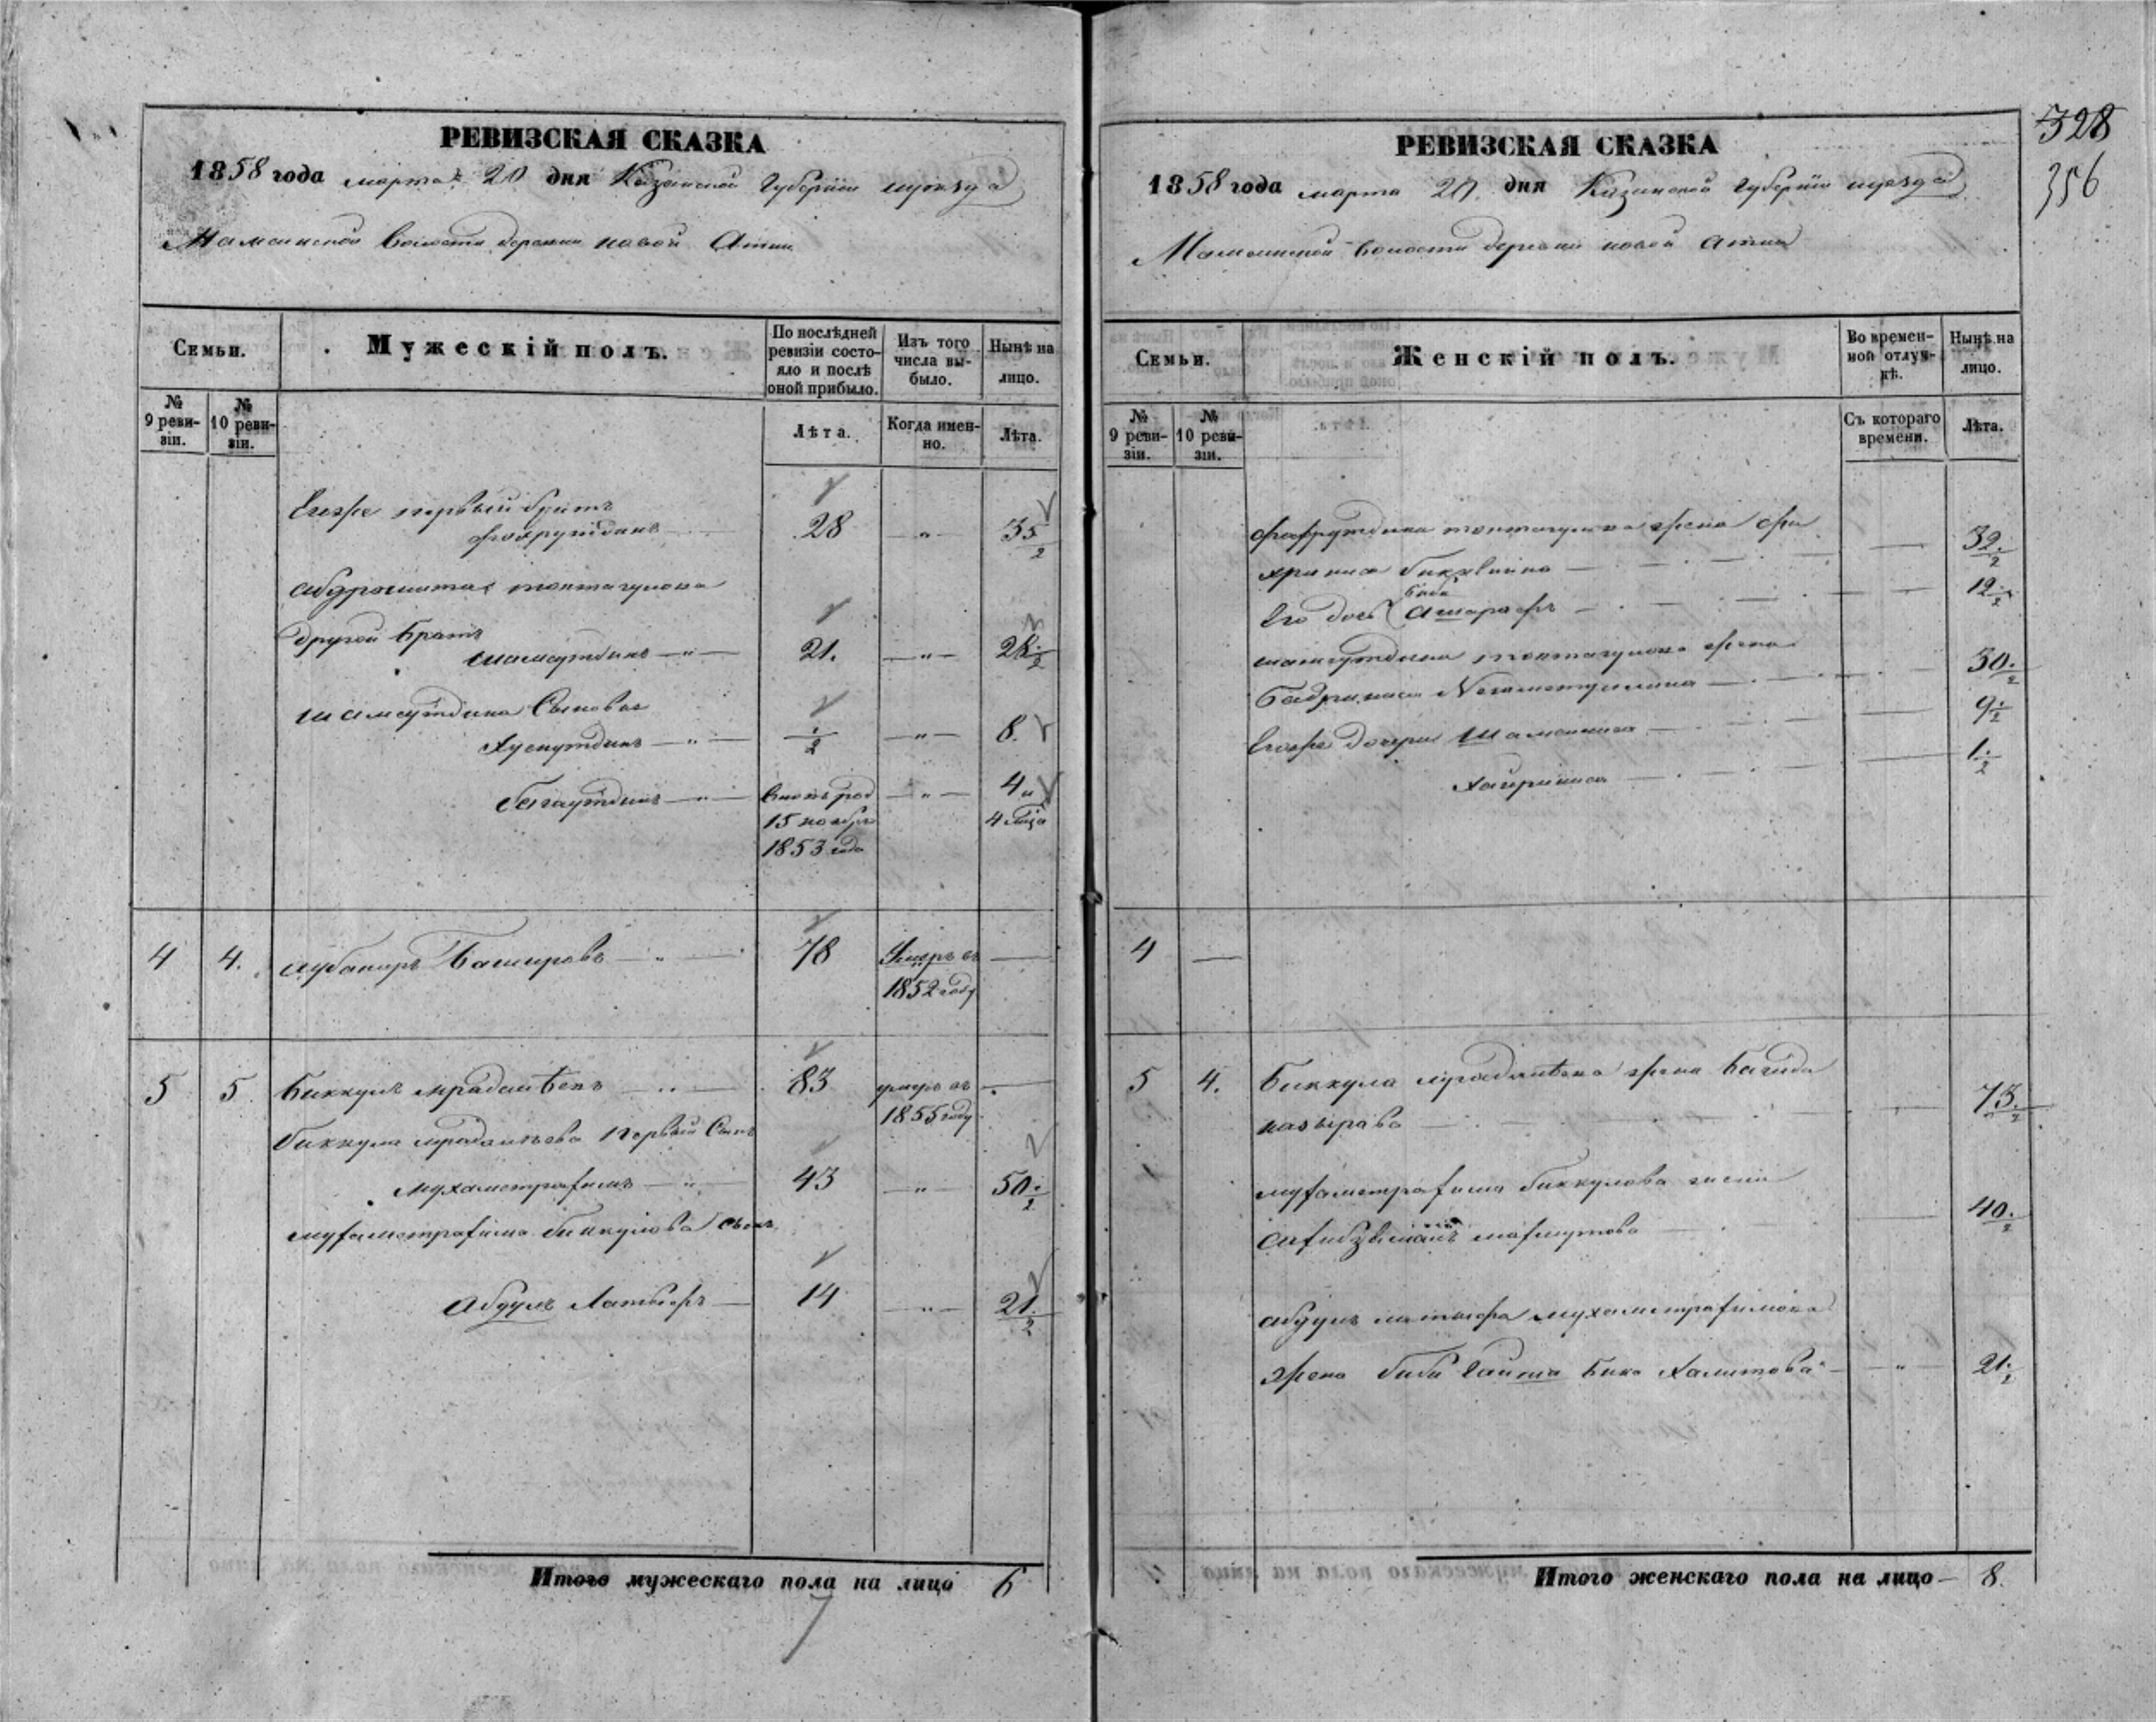 РЕВИЗСКАЯ СКАЗКА
1858 года марта 20 дня Казанской Губернии и уезда
Мамсинской волости деревни новой Атни
Семьи.
Мужескій полъ.
По послѣдней ревизіи состояло и послѣ оной прибыло.
Изъ того числа выбыло.
Нынѣ на лицо.
№ 9 ревизіи.
№ 10 ревизіи.
Лѣта.
Когда именно.
Лѣта.
Егоже первый братъ
Фахрутдинъ 28 „ 35 1/2
Абдрашита Токтагулова
другой братъ
Шамсутдинъ „ 21. „ 28 1/2
Шамсутдина Сыновья
Хуснутдинъ „ 1/2 „ 8.
багаутдинъ „ вновь род „ 4 и
15 ноябр 4 мѣца
1853 года
4 4. Аубакиръ Башировъ „ 78 Умеръ въ
1852 году
5 5 Биккулъ 83 умеръ въ
1855 году
Биккула первый Сынъ
Мухаметрахимъ „ 43 „ 50 1/2
Мухаметрахима биккулова Сынъ
Абдулъ Латыфъ 14 „ 21. 1/2
Итого мужескаго пола на лицо 6
7
РЕВИЗСКАЯ СКАЗКА
328
356
1858 года марта 20 дня Казанской Губерніи и уезда
Мамсинской волости деревни новой Атни
Семьи.
Женскій полъ.
Во временной отлучкѣ.
Нынѣ на лицо.
№ 9 ревизіи.
№ 10 ревизіи.
Съ котораго времени.
Лѣта.
Фахрутдина Токтагулова жена Фа
хриниса 32. 1/2
биби
Его дочь Ашарафъ 12 1/2
Шамсутдина Токтагулова жена
Бадриниса 30. 1/2
Егоже дочери Шамсиниса 9 1/2
Хайриниса 1. 1/2
4
5 4. Биккула жена Багида
назырова 73. 1/2
Мухаметрахима биккулова жена
махмутова 40. 1/2
Абдулъ латыфа Мухаметрахимова
жена биби Гайша Бика Халитова „ 21. 1/2
Итого женскаго пола на лицо 8.